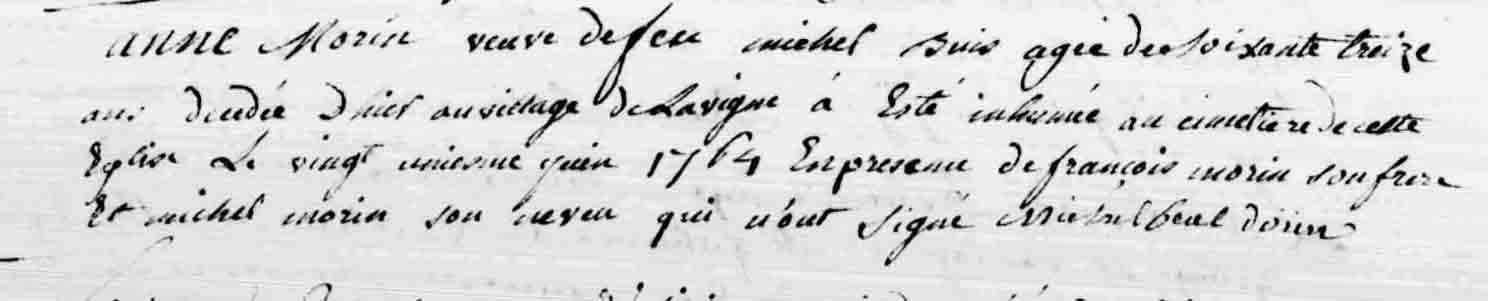 anne Morin veuve de feu michel Buis agée de soixante treize
ans decedée d'hier au village de Lavigne à Esté inhumée au cimetiere de cette
Eglise Le vingt uniesme juin 1764 En presence de françois morin son frere
Et michel morin son neveu qui n'ont signé